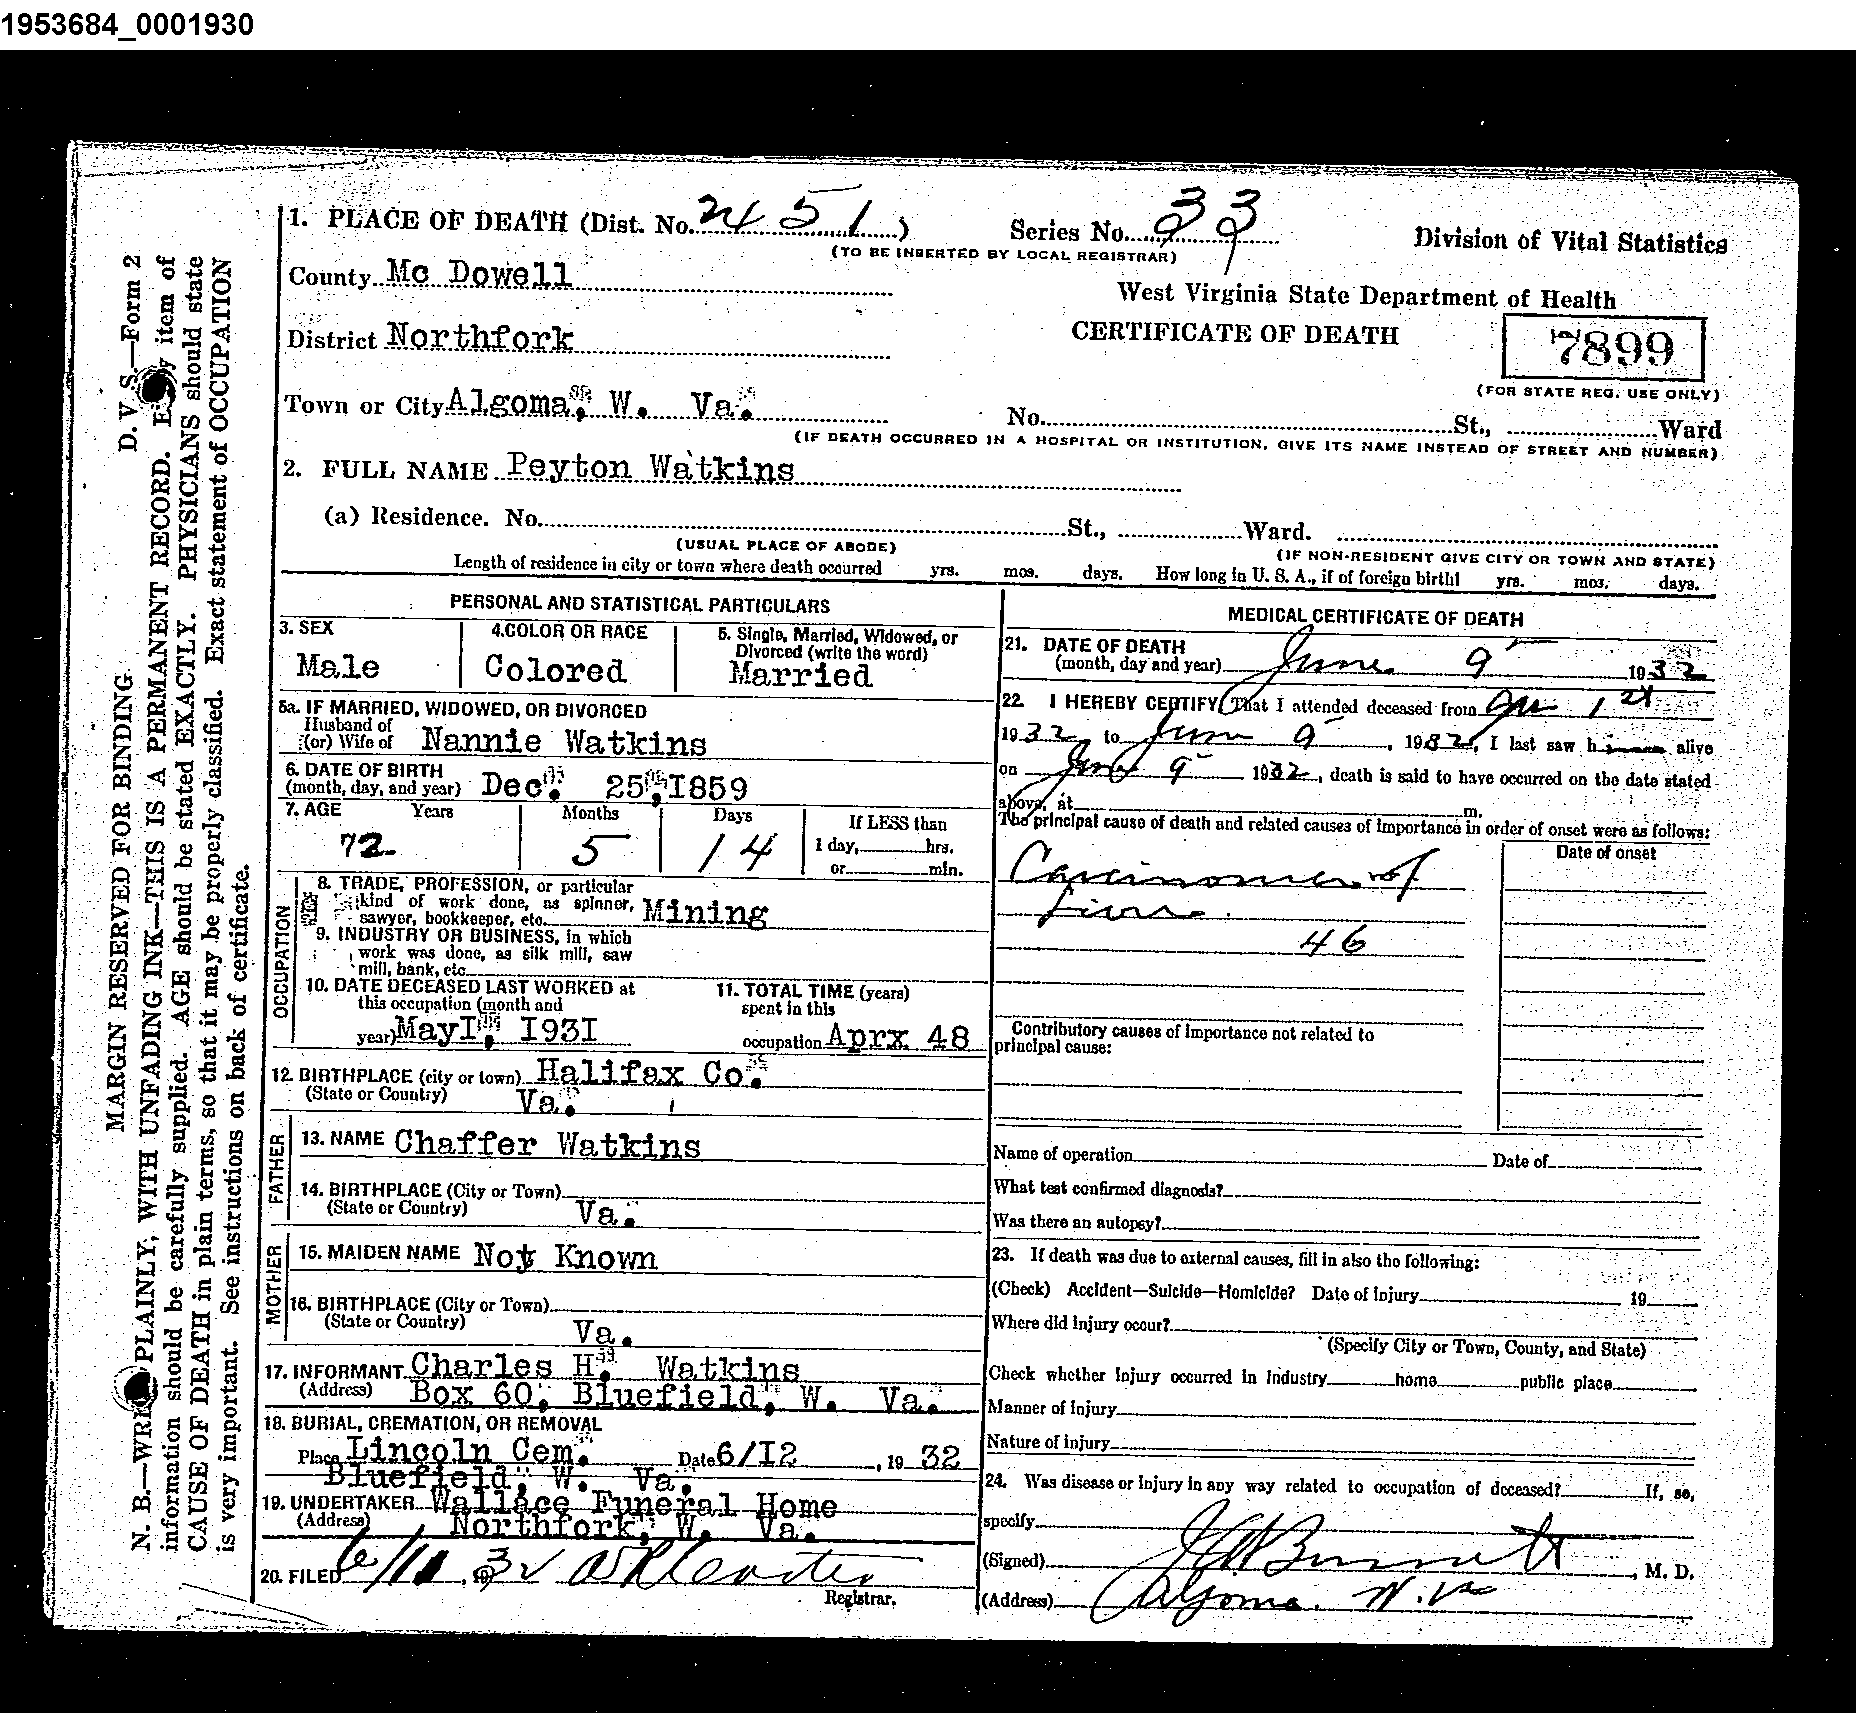 1953684_0001930
1. PLACE OF DEATH (Dist. No. 2451)
Series No. 33
Division of Vital Statistics
(TO BE INSERTED BY LOCAL REGISTRAR)
County Mc Dowell
West Virginia State Department of Health
District Northfork
CERTIFICATE OF DEATH
7899
(FOR STATE REG. USE ONLY)
Town or City Algoma, W. Va.
No. St., Ward
(IF DEATH OCCURRED IN A HOSPITAL OR INSTITUTION, GIVE ITS NAME INSTEAD OF STREET AND NUMBER)
2. FULL NAME Peyton Watkins
(a) Residence. No. St., Ward.
(USUAL PLACE OF ABODE)
(IF NON-RESIDENT GIVE CITY OR TOWN AND STATE)
Length of residence in city or town where death occurred yrs. mos. days. How long in U. S. A., if of foreign birth? yrs. mos. days.
PERSONAL AND STATISTICAL PARTICULARS
3. SEX
Male
4. COLOR OR RACE
Colored
5. Single, Married, Widowed, or
Divorced (write the word)
Married
5a. IF MARRIED, WIDOWED, OR DIVORCED
Husband of
(or) Wife of Nannie Watkins
6. DATE OF BIRTH
(month, day, and year) Dec. 25, I859
7. AGE Years Months Days If LESS than
72 5 14 1 day, hrs.
or min.
OCCUPATION
8. TRADE, PROFESSION, or particular
kind of work done, as spinner,
sawyer, bookkeeper, etc. Mining
9. INDUSTRY OR BUSINESS, in which
work was done, as silk mill, saw
mill, bank, etc.
10. DATE DECEASED LAST WORKED at
this occupation (month and
year) MayI, I93I
11. TOTAL TIME (years)
spent in this
occupation Aprx 48
12. BIRTHPLACE (city or town) Halifax Co.
(State or Country) Va.
FATHER
13. NAME Chaffer Watkins
14. BIRTHPLACE (City or Town)
(State or Country) Va.
MOTHER
15. MAIDEN NAME Not Known
16. BIRTHPLACE (City or Town)
(State or Country) Va.
17. INFORMANT Charles H. Watkins
(Address) Box 60, Bluefield, W. Va.
18. BURIAL, CREMATION, OR REMOVAL
Place Lincoln Cem. Date 6/I2, 19 32
Bluefield, W. Va.
19. UNDERTAKER Wallace Funeral Home
(Address) Northfork, W. Va.
20. FILED 6/11, 1932
Registrar.
MEDICAL CERTIFICATE OF DEATH
21. DATE OF DEATH
(month, day and year) June 9 1932
22. I HEREBY CERTIFY, That I attended deceased from 1st
1932 to June 9, 1932, I last saw him alive
on June 9 1932, death is said to have occurred on the date stated
above, at m.
The principal cause of death and related causes of importance in order of onset were as follows:
Date of onset
Carcinoma of
Liver
46
Contributory causes of importance not related to
principal cause:
Name of operation Date of
What test confirmed diagnosis?
Was there an autopsy?
23. If death was due to external causes, fill in also the following:
(Check) Accident—Suicide—Homicide? Date of injury 19
Where did injury occur?
(Specify City or Town, County, and State)
Check whether injury occurred in industry home public place
Manner of injury
Nature of injury
24. Was disease or injury in any way related to occupation of deceased? If, so,
specify
(Signed) Burnett, M. D.
(Address) Algoma. W. Va
MARGIN RESERVED FOR BINDING D. V. S.—Form 2
N. B.—WRITE PLAINLY, WITH UNFADING INK—THIS IS A PERMANENT RECORD. Every item of
information should be carefully supplied. AGE should be stated EXACTLY. PHYSICIANS should state
CAUSE OF DEATH in plain terms, so that it may be properly classified. Exact statement of OCCUPATION
is very important. See instructions on back of certificate.